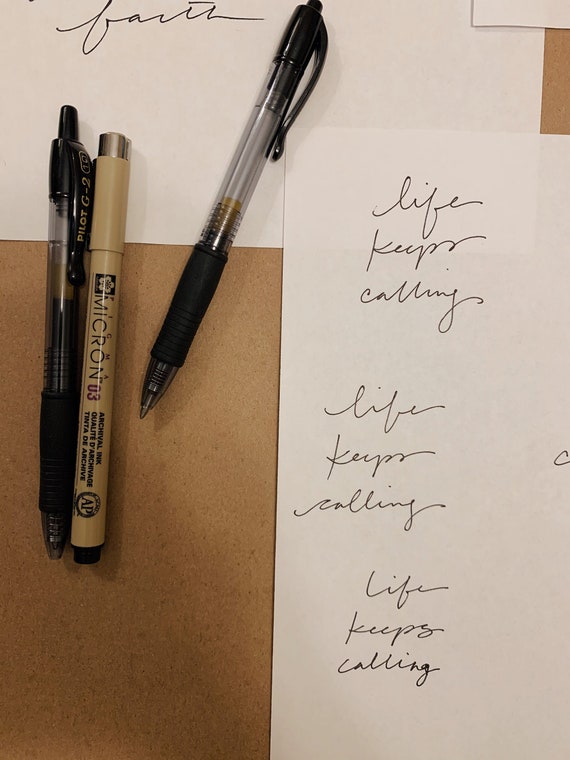 faith
PILOT G-2
PIGMA
MICRON 03
ARCHIVAL INK
QUALITÉ D'ARCHIVAGE
TINTA DE ARCHIVE
AP
life
keeps
calling
life
keeps
calling
life
keeps
calling